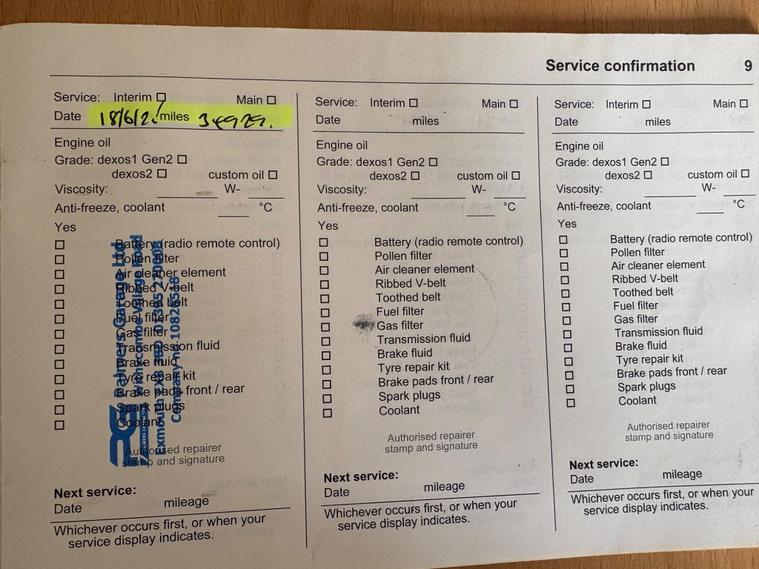 Service confirmation 9
Service: Interim ☐ Main ☐
Date 18/6/2 miles
Engine oil
Grade: dexos1 Gen2 ☐
dexos2 ☐ custom oil ☐
Viscosity: W-
Anti-freeze, coolant °C
Yes
☐ Battery (radio remote control)
☐ Pollen filter
☐ Air cleaner element
☐ Ribbed V-belt
☐ Toothed belt
☐ Fuel filter
☐ Gas filter
☐ Transmission fluid
☐ Brake fluid
☐ Tyre repair kit
☐ Brake pads front / rear
☐ Spark plugs
☐ Coolant
Palmers Garage Ltd
Withycombe Village
Exmouth EX8
Company no:
Authorised repairer
stamp and signature
Next service:
Date mileage
Whichever occurs first, or when your
service display indicates.
Service: Interim ☐ Main ☐
Date miles
Engine oil
Grade: dexos1 Gen2 ☐
dexos2 ☐ custom oil ☐
Viscosity: W-
Anti-freeze, coolant °C
Yes
☐ Battery (radio remote control)
☐ Pollen filter
☐ Air cleaner element
☐ Ribbed V-belt
☐ Toothed belt
☐ Fuel filter
☐ Gas filter
☐ Transmission fluid
☐ Brake fluid
☐ Tyre repair kit
☐ Brake pads front / rear
☐ Spark plugs
☐ Coolant
Authorised repairer
stamp and signature
Next service:
Date mileage
Whichever occurs first, or when your
service display indicates.
Service: Interim ☐ Main ☐
Date miles
Engine oil
Grade: dexos1 Gen2 ☐
dexos2 ☐ custom oil ☐
Viscosity: W-
Anti-freeze, coolant °C
Yes
☐ Battery (radio remote control)
☐ Pollen filter
☐ Air cleaner element
☐ Ribbed V-belt
☐ Toothed belt
☐ Fuel filter
☐ Gas filter
☐ Transmission fluid
☐ Brake fluid
☐ Tyre repair kit
☐ Brake pads front / rear
☐ Spark plugs
☐ Coolant
Authorised repairer
stamp and signature
Next service:
Date mileage
Whichever occurs first, or when your
service display indicates.